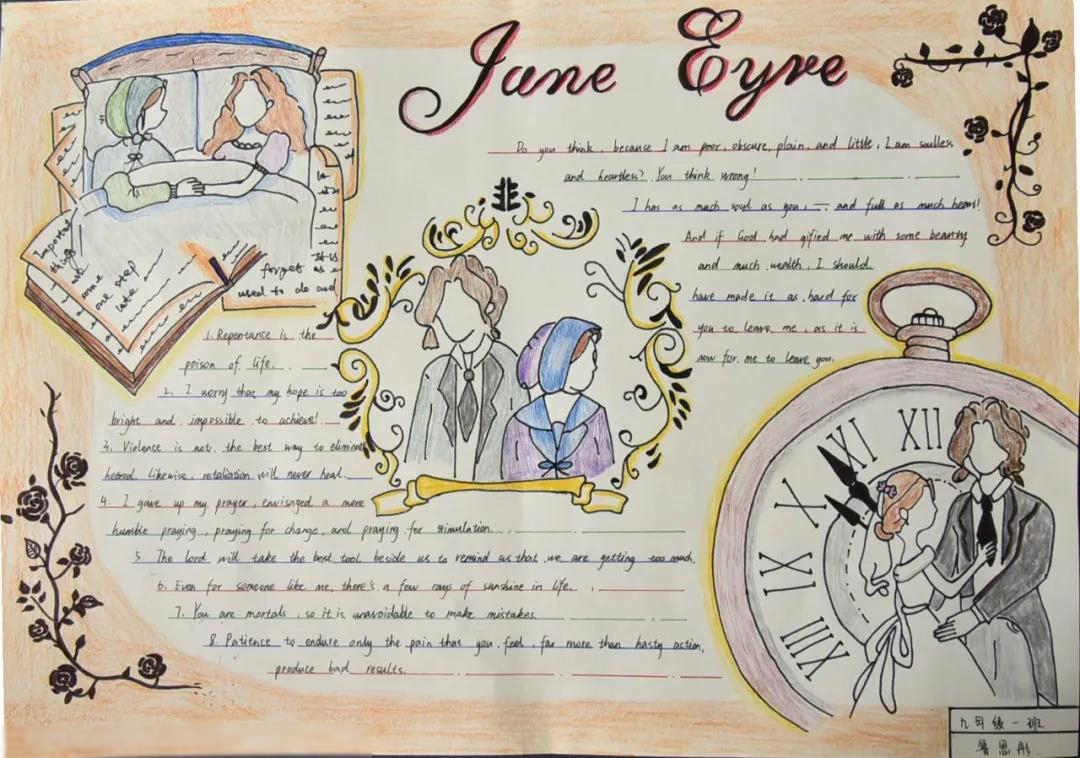 Jane Eyre
Do you think, because I am poor, obscure, plain, and little, I am soulless
and heartless? You think wrong!
I has as much soul as you, — and full as much heart!
And if God had gified me with some beauty
and much wealth, I should
have made it as hard for
you to leave me, as it is
now for me to leave you.
Important
things
are
come
one step
late
forget
used to do and
It is
1. Repentance is the
poison of life.
2. I worry that my hope is too
bright and impossible to achieve!
3. Violence is not the best way to eliminate
hatred. Likewise, retaliation will never heal.
4. I gave up my prayer, envisaged a more
humble praying, praying for change, and praying for stimulation.
5. The lord will take the best tool beside us to remind us that we are getting too much.
6. Even for someone like me, there's a few rays of sunshine in life.
7. You are mortals, so it is unavoidable to make mistakes.
8. Patience to endure only the pain that you feel, far more than hasty action,
produce bad results.
XI XII
X
IX
VIII
九年级一班
思彤